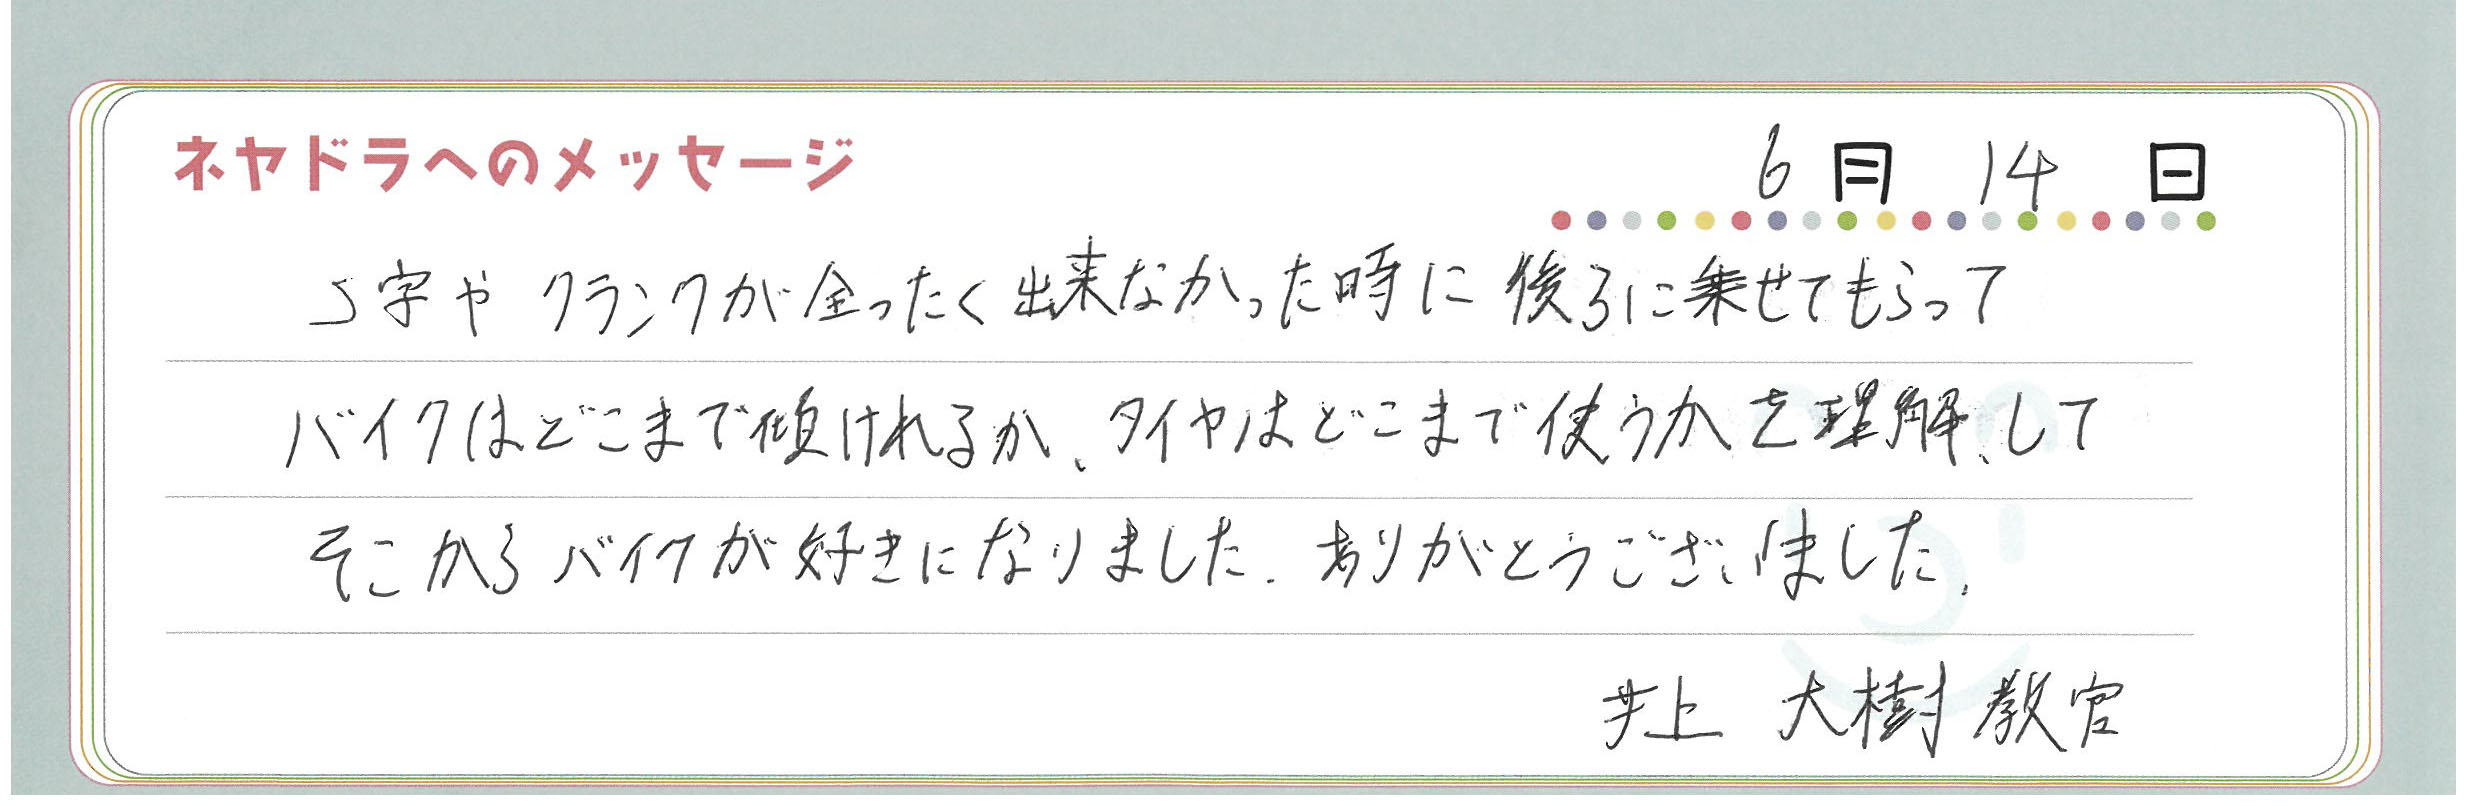 ネヤドラへのメッセージ
6月 14日
S字や クランクが全ったく出来なかった時に 後ろに乗せてもらって
バイクはどこまで傾けれるか、タイヤはどこまで使うかを理解、して
そこから バイクが好きになりました. ありがとうございました.
井上 大樹 教官